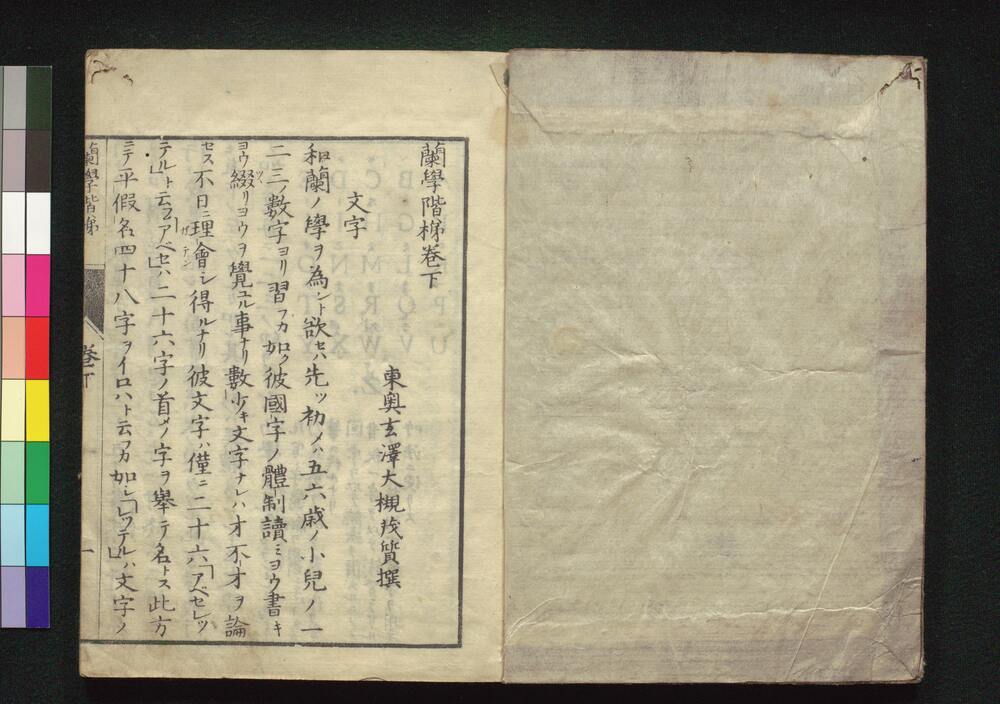 蘭學階梯卷下
東奥玄澤大槻茂質撰
文字
和蘭ノ學ヲ為ント欲セハ先ツ初メハ五六歳ノ小兒ノ一
二三ノ數字ヨリ習フカ如ク彼國字ノ體制讀ミヨウ書キ
ヨウ綴リヨウヲ覺ユル事ナリ數少キ文字ナレハ才不才ヲ論
セス不日ニ理會シ得ルナリ彼文字ハ僅ニ二十六「アベセレッ
テル」ト云フ「アベセ」ハ二十六字ノ首メノ字ヲ舉テ名トス此方
ニテ平假名四十八字ヲイロハト云フカ如シ「レッテル」ハ文字ノ
蘭學階梯
卷下
一